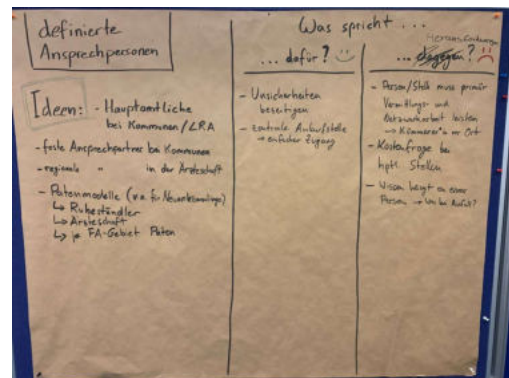 definierte
Ansprechpersonen
Ideen: - Hauptamtliche
bei Kommunen/LRA
- feste Ansprechpartner bei Kommunen
- regionale " in der Ärzteschaft
- Patenmodelle (v.a. für Neuankömmlinge)
↳ Ruheständler
↳ Ärzteschaft
↳ je FA-Gebiet Paten
Was spricht ...
... dafür?
- Unsicherheiten
beseitigen
- zentrale Anlaufstelle
→ einfacher Zugang
Herausforderungen
... dagegen?
- Person/Stelle muss primär
Vermittlungs- und
Netzwerkarbeit leisten
→ Kümmerer*in vor Ort
- Kostenfrage bei
hptl. Stellen
- Wissen liegt an einer
Person →